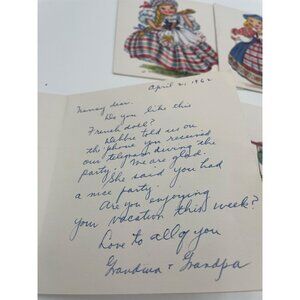 April 2, 1962
Nancy dear.
Do you like this
French doll?
Debbie told us on
the phone you received
our telegram during the
party. We are glad.
She said you had
a nice party.
Are you enjoying
your vacation this week?
Love to all of you
Grandma + Grandpa